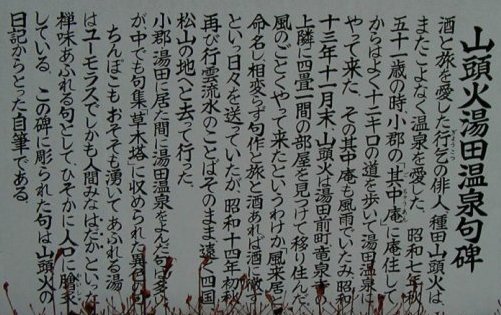 山頭火湯田温泉句碑
酒と旅を愛した行乞の俳人 種田山頭火は
ぎょうこつ
またこよなく温泉を愛した。 昭和七年秋
五十一歳の時小郡の其中庵に庵住して
からはよく十二キロの道を歩いて湯田温泉に
やって来た。 その其中庵も風雨でいたみ昭和
十三年十一月末 山頭火は湯田前町竜泉寺の
上隣に四畳一間の部屋を見つけて移り住んだ。
風のごとくやって来たというわけか「風来居」
命名し相変らず句作と旅と酒あれば酒に徹す
といっ日々を送っていたが 昭和十四年初秋
再び行雲流水のことばそのまま遠く四国
松山の地へと去って行った。
小郡 湯田に居た間に湯田温泉をよんだ句は多い
が中でも句集「草木塔」に収められた異色の句
ちんぽこもおそそも湧いてあふれる湯
はユーモラスでしかも人間みなはだかといった
禅味あふれる句として、ひそかに人口に膾炙
している。 この碑に彫られた句は山頭火の
日記からとった自筆である。